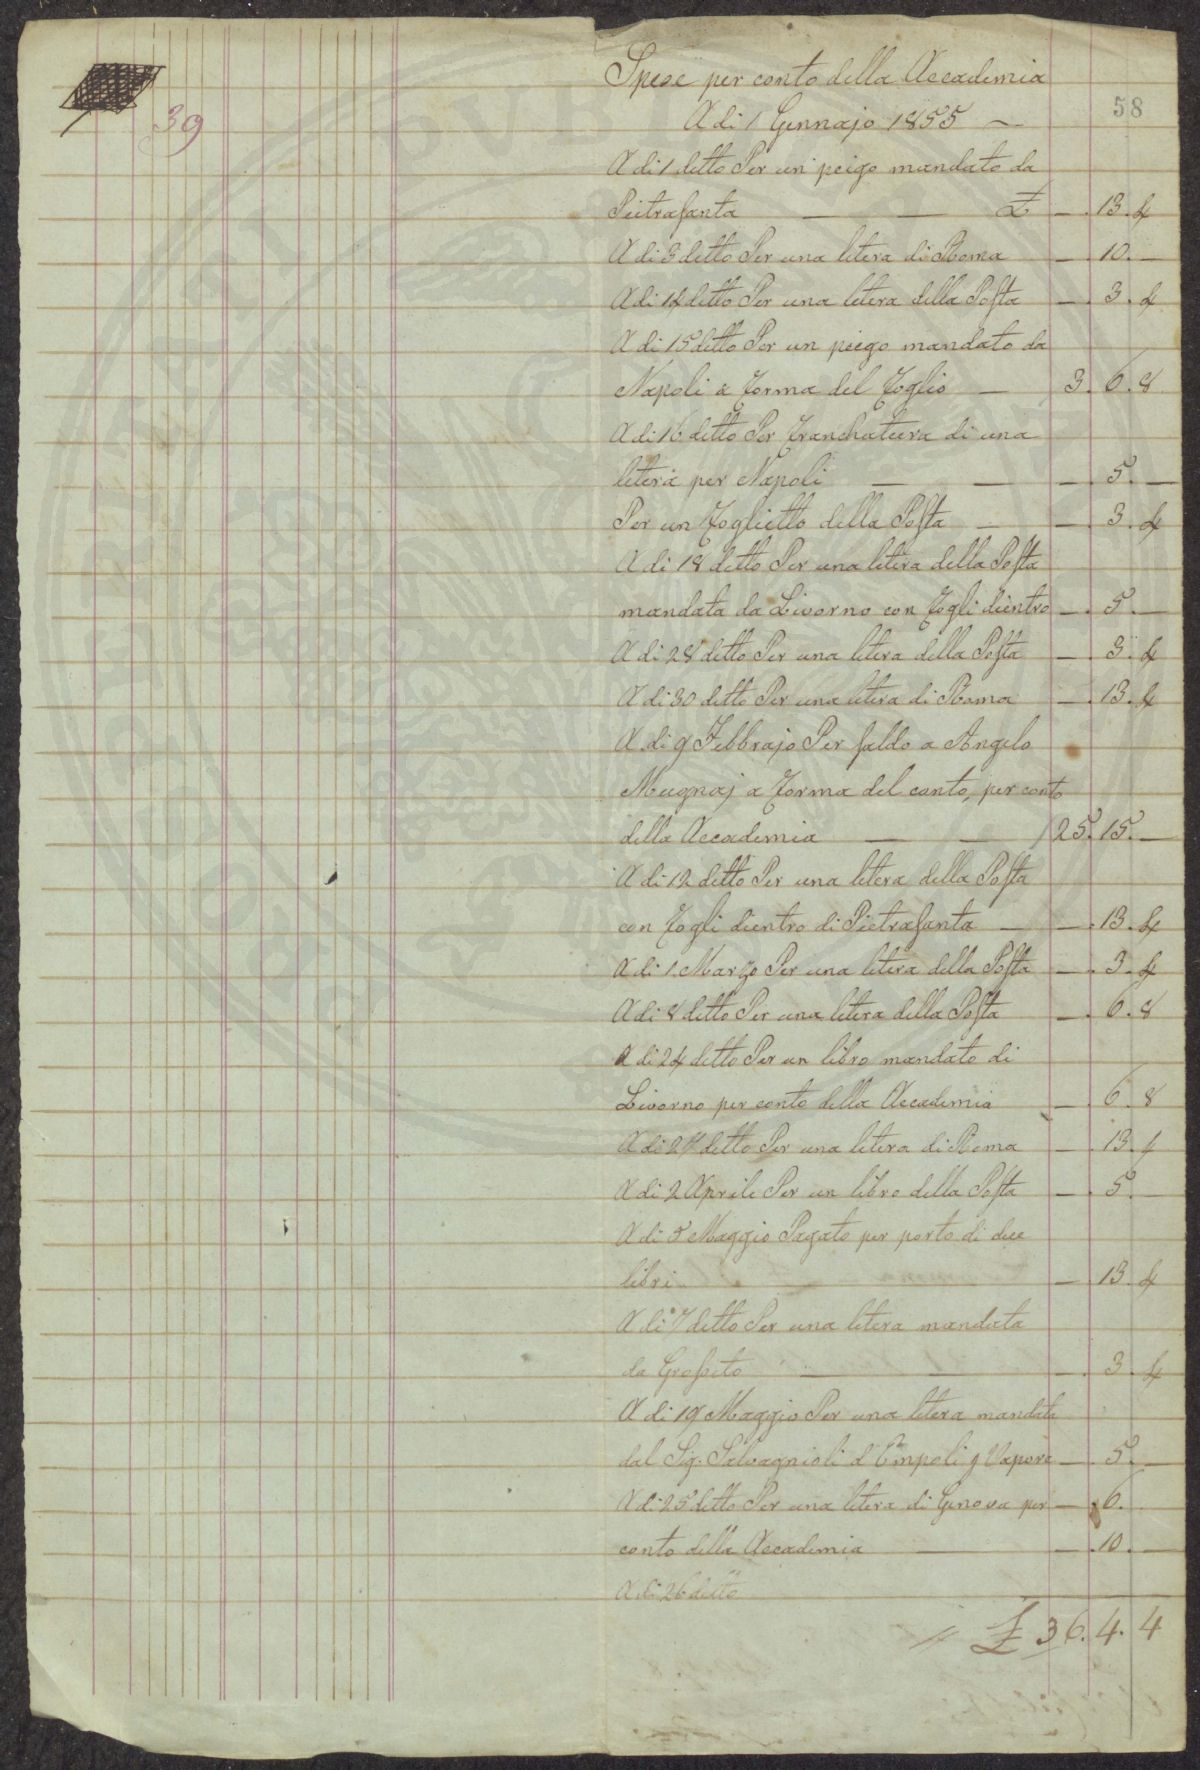 39
58
Spese per conto della Accademia
A di 1 Gennajo 1855 ~
A di 1 detto Per un peigo mandato da
Pietrasanta — — £ — . 13 . 4
A di 3 detto Per una litera di Roma — . 10 . —
A di 14 detto Per una litera della Posta — . 3 . 4
A di 15 detto Per un peigo mandato da
Napoli a forma del foglio — 3 . 6 . 8
A di 16 detto Per franchatura di una
litera per Napoli — — — . 5 . —
Per un foglietto della Posta — — . 3 . 4
A di 18 detto Per una litera della Posta
mandata da Livorno con fogli dientro — . 5 . —
A di 28 detto Per una litera della Posta — . 3 . 4
A di 30 detto Per una litera di Roma — . 13 . 4
A di 9 Febbrajo Per saldo a Angelo
Mugnaj a forma del conto, per conto
della Accademia — — 25 . 15 . —
A di 12 detto Per una litera della Posta
con fogli dientro di Pietrasanta — — . 13 . 4
A di 1 Marzo Per una litera della Posta — . 3 . 4
A di 8 detto Per una litera della Posta — . 6 . 8
A di 24 detto Per un libro mandato di
Livorno per conto della Accademia — . 6 . 8
A di 27 detto Per una litera di Roma — . 13 . 4
A di 2 Aprile Per un libro della Posta — . 5 . —
A di 5 Maggio Pagato per porto di due
libri — . 13 . 4
A di 7 detto Per una litera mandata
da Grosseto — — — . 3 . 4
A di 19 Maggio Per una litera mandata
dal Sig. Salvagnioli d'Empoli Vapore — . 5 . —
A di 25 detto Per una litera di Genova per — . 6 .
conto della Accademia — — . 10 . —
A di 26 detto
£ 36 . 4 . 4